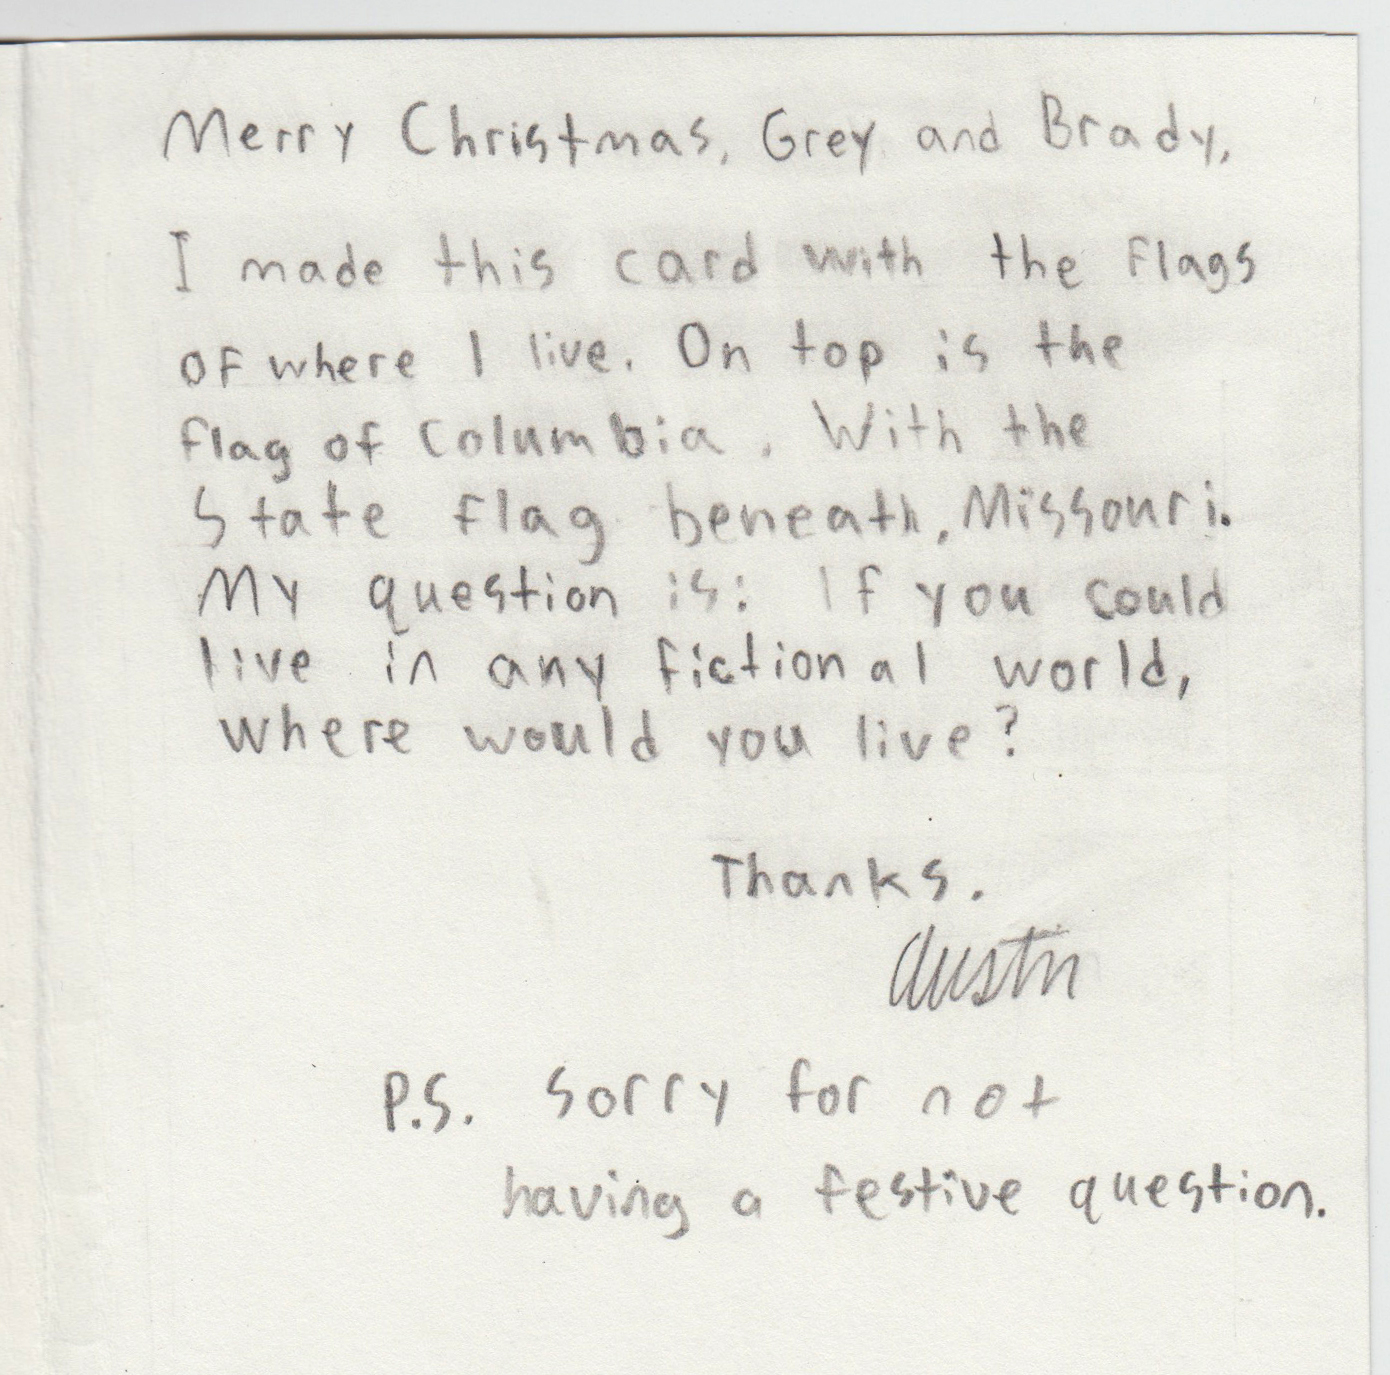 Merry Christmas, Grey and Brady,
I made this card with the flags
of where I live. On top is the
flag of Columbia. With the
State flag beneath, Missouri.
My question is: If you could
live in any fictional world,
where would you live?
Thanks.
Austin
P.S. Sorry for not
having a festive question.